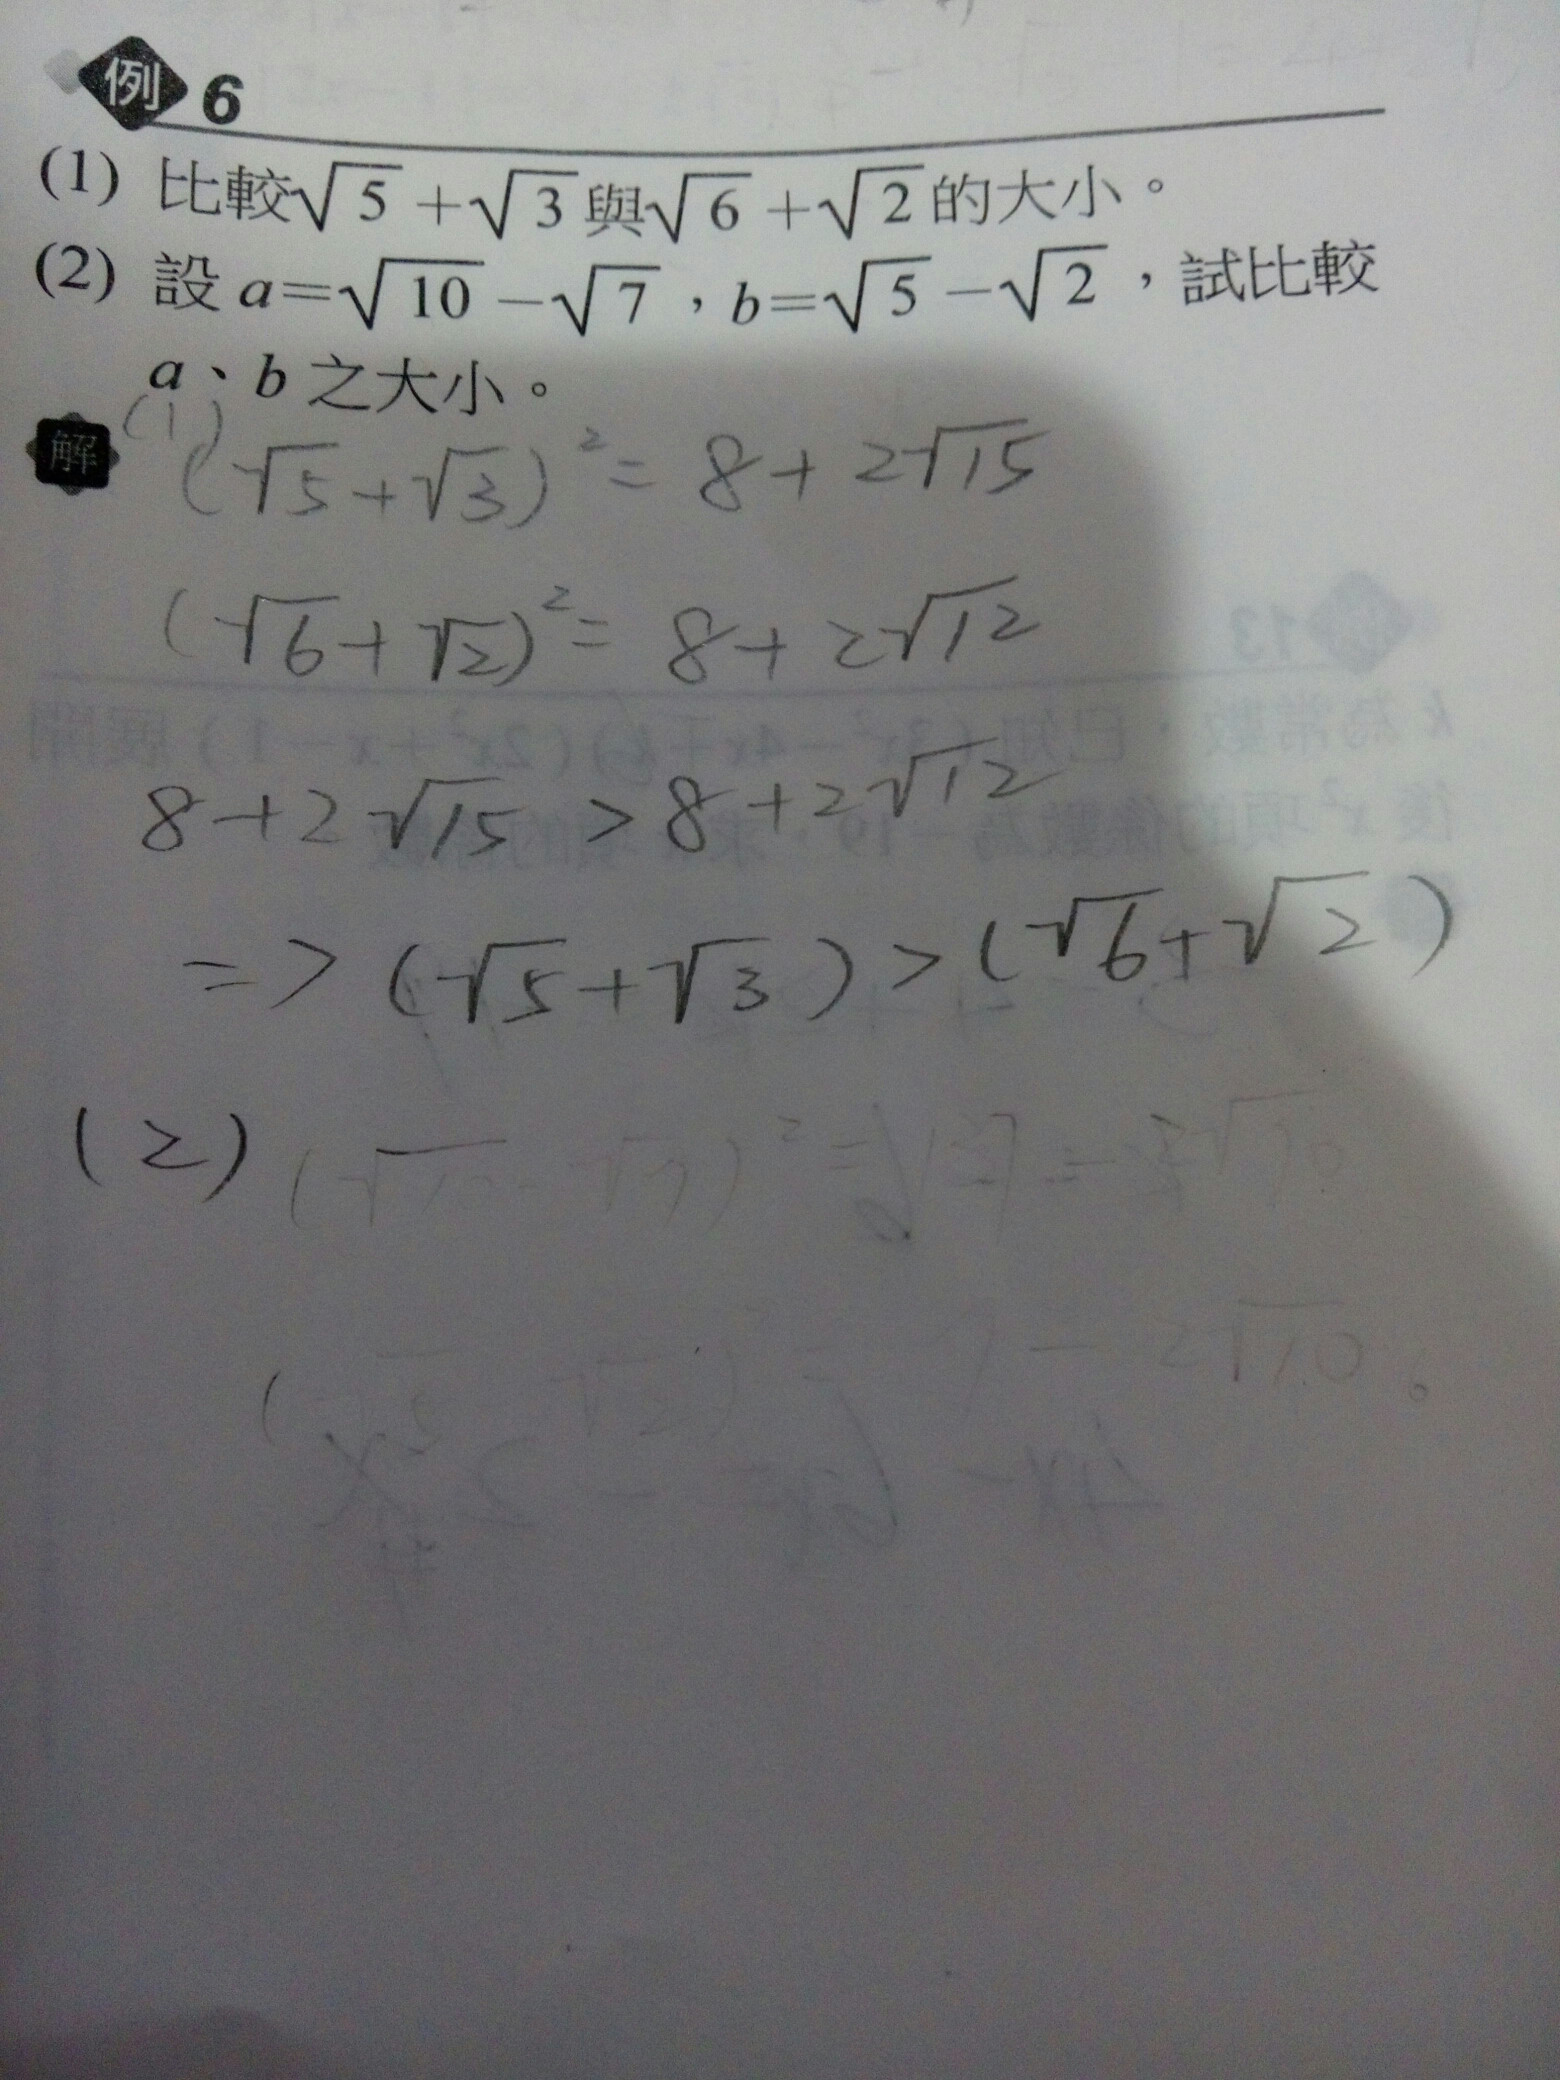 例 6
(1) 比較√5+√3與√6+√2的大小。
(2) 設 a=√10-√7，b=√5-√2，試比較
a、b 之大小。
解 (1) (√5+√3)²= 8+2√15
(√6+√2)²= 8+2√12
8+2√15 > 8+2√12
=> (√5+√3) > (√6+√2)
(2)